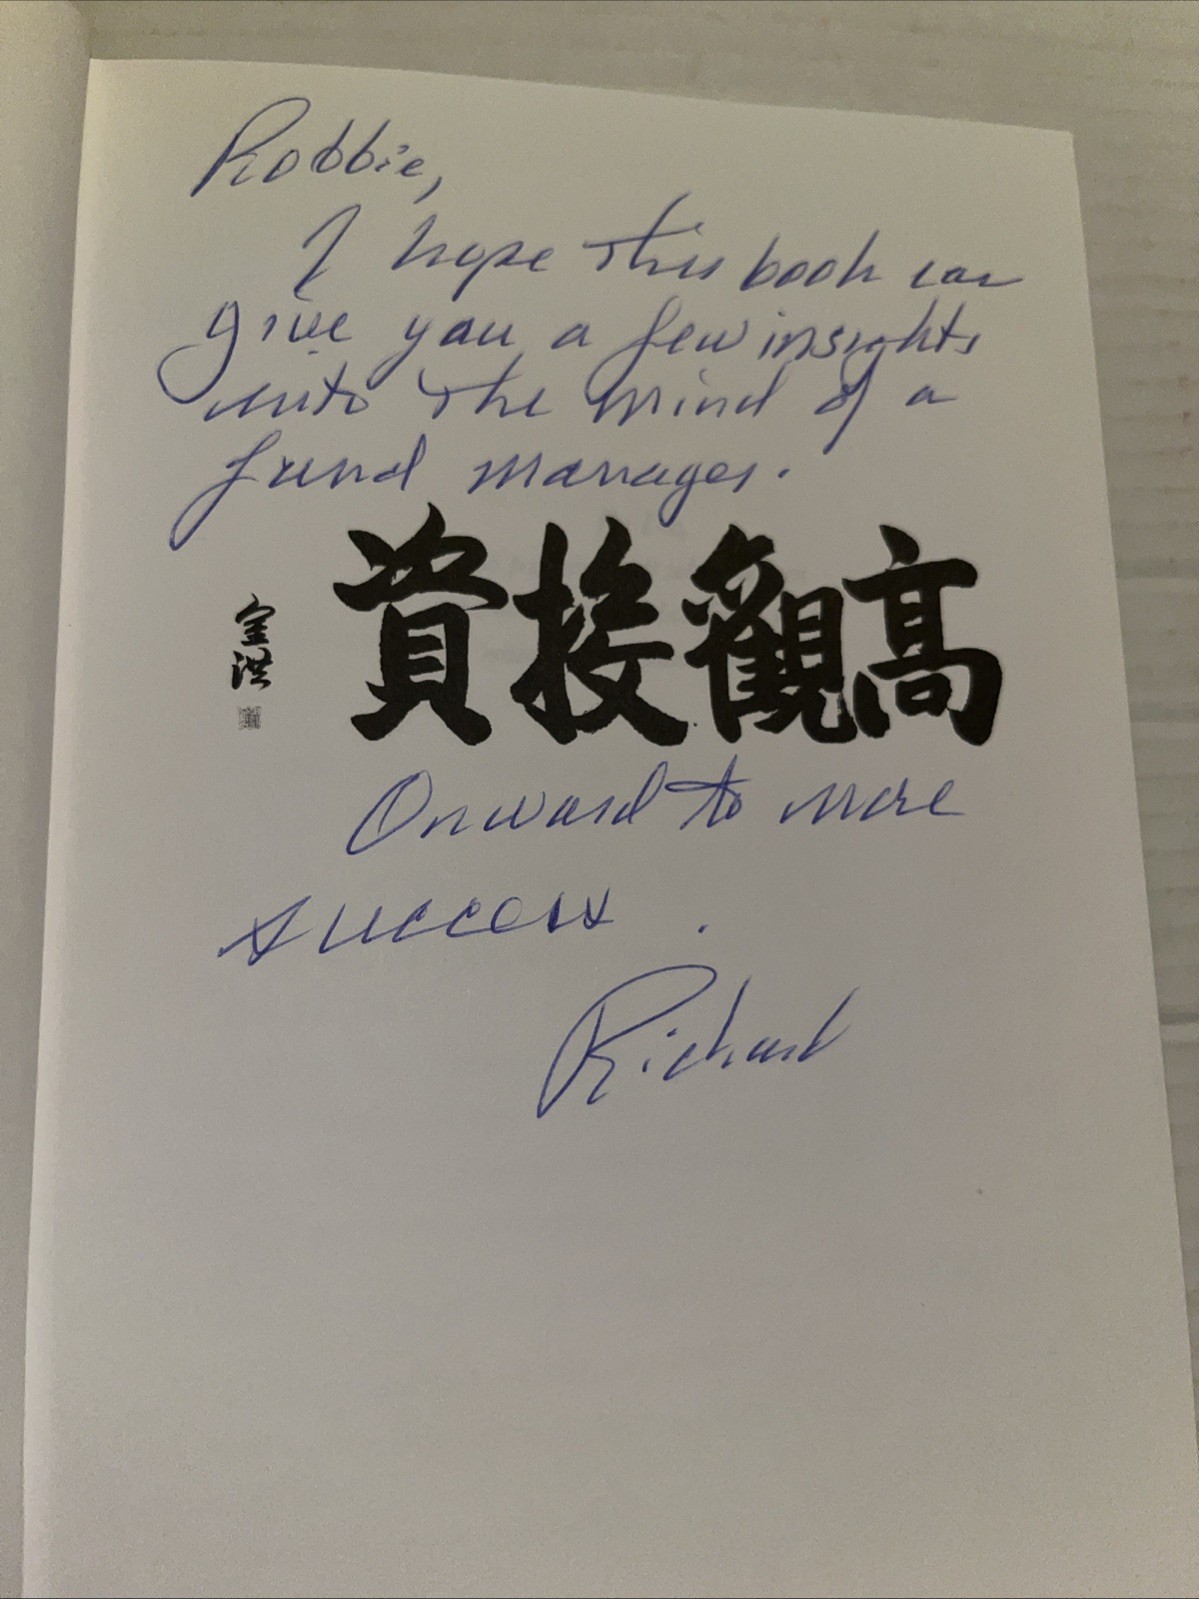 Robbie,
I hope this book can
give you a few insights
into the mind of a
fund manager.
高觀投資
金洪
Onward to more
success.
Richard